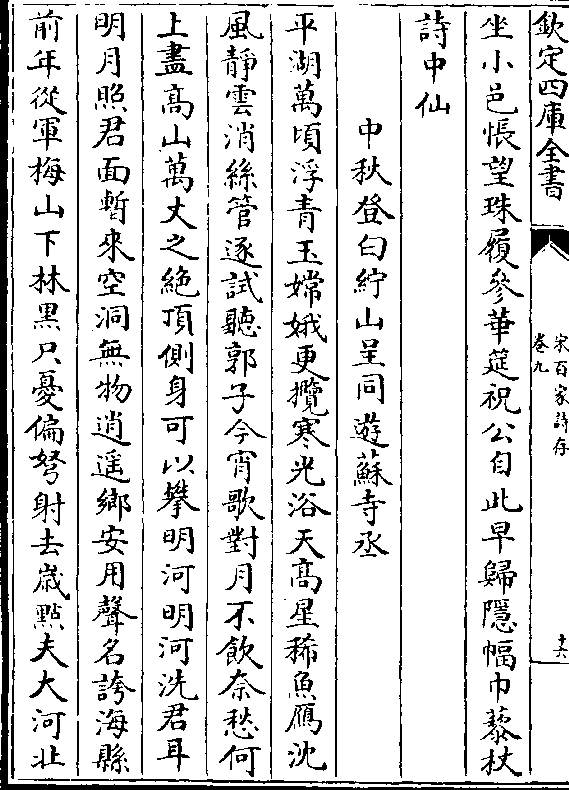 欽定四庫全書
宋百家詩存
卷九
十六
坐小邑悵望珠履參華筵祝公自此早歸隱幅巾藜杖
詩中仙
中秋登白紵山呈同遊蘇寺丞
平湖萬頃浮青玉嫦娥更攬寒光浴天高星稀魚雁沈
風靜雲消絲管逐試聽郭子今宵歌對月不飲奈愁何
上盡高山萬丈之絶頂側身可以攀明河明河洗君耳
明月照君面暫來空洞無物逍遥鄉安用聲名誇海縣
前年從軍梅山下林黒只憂偏弩射去歳㸃夫大河北